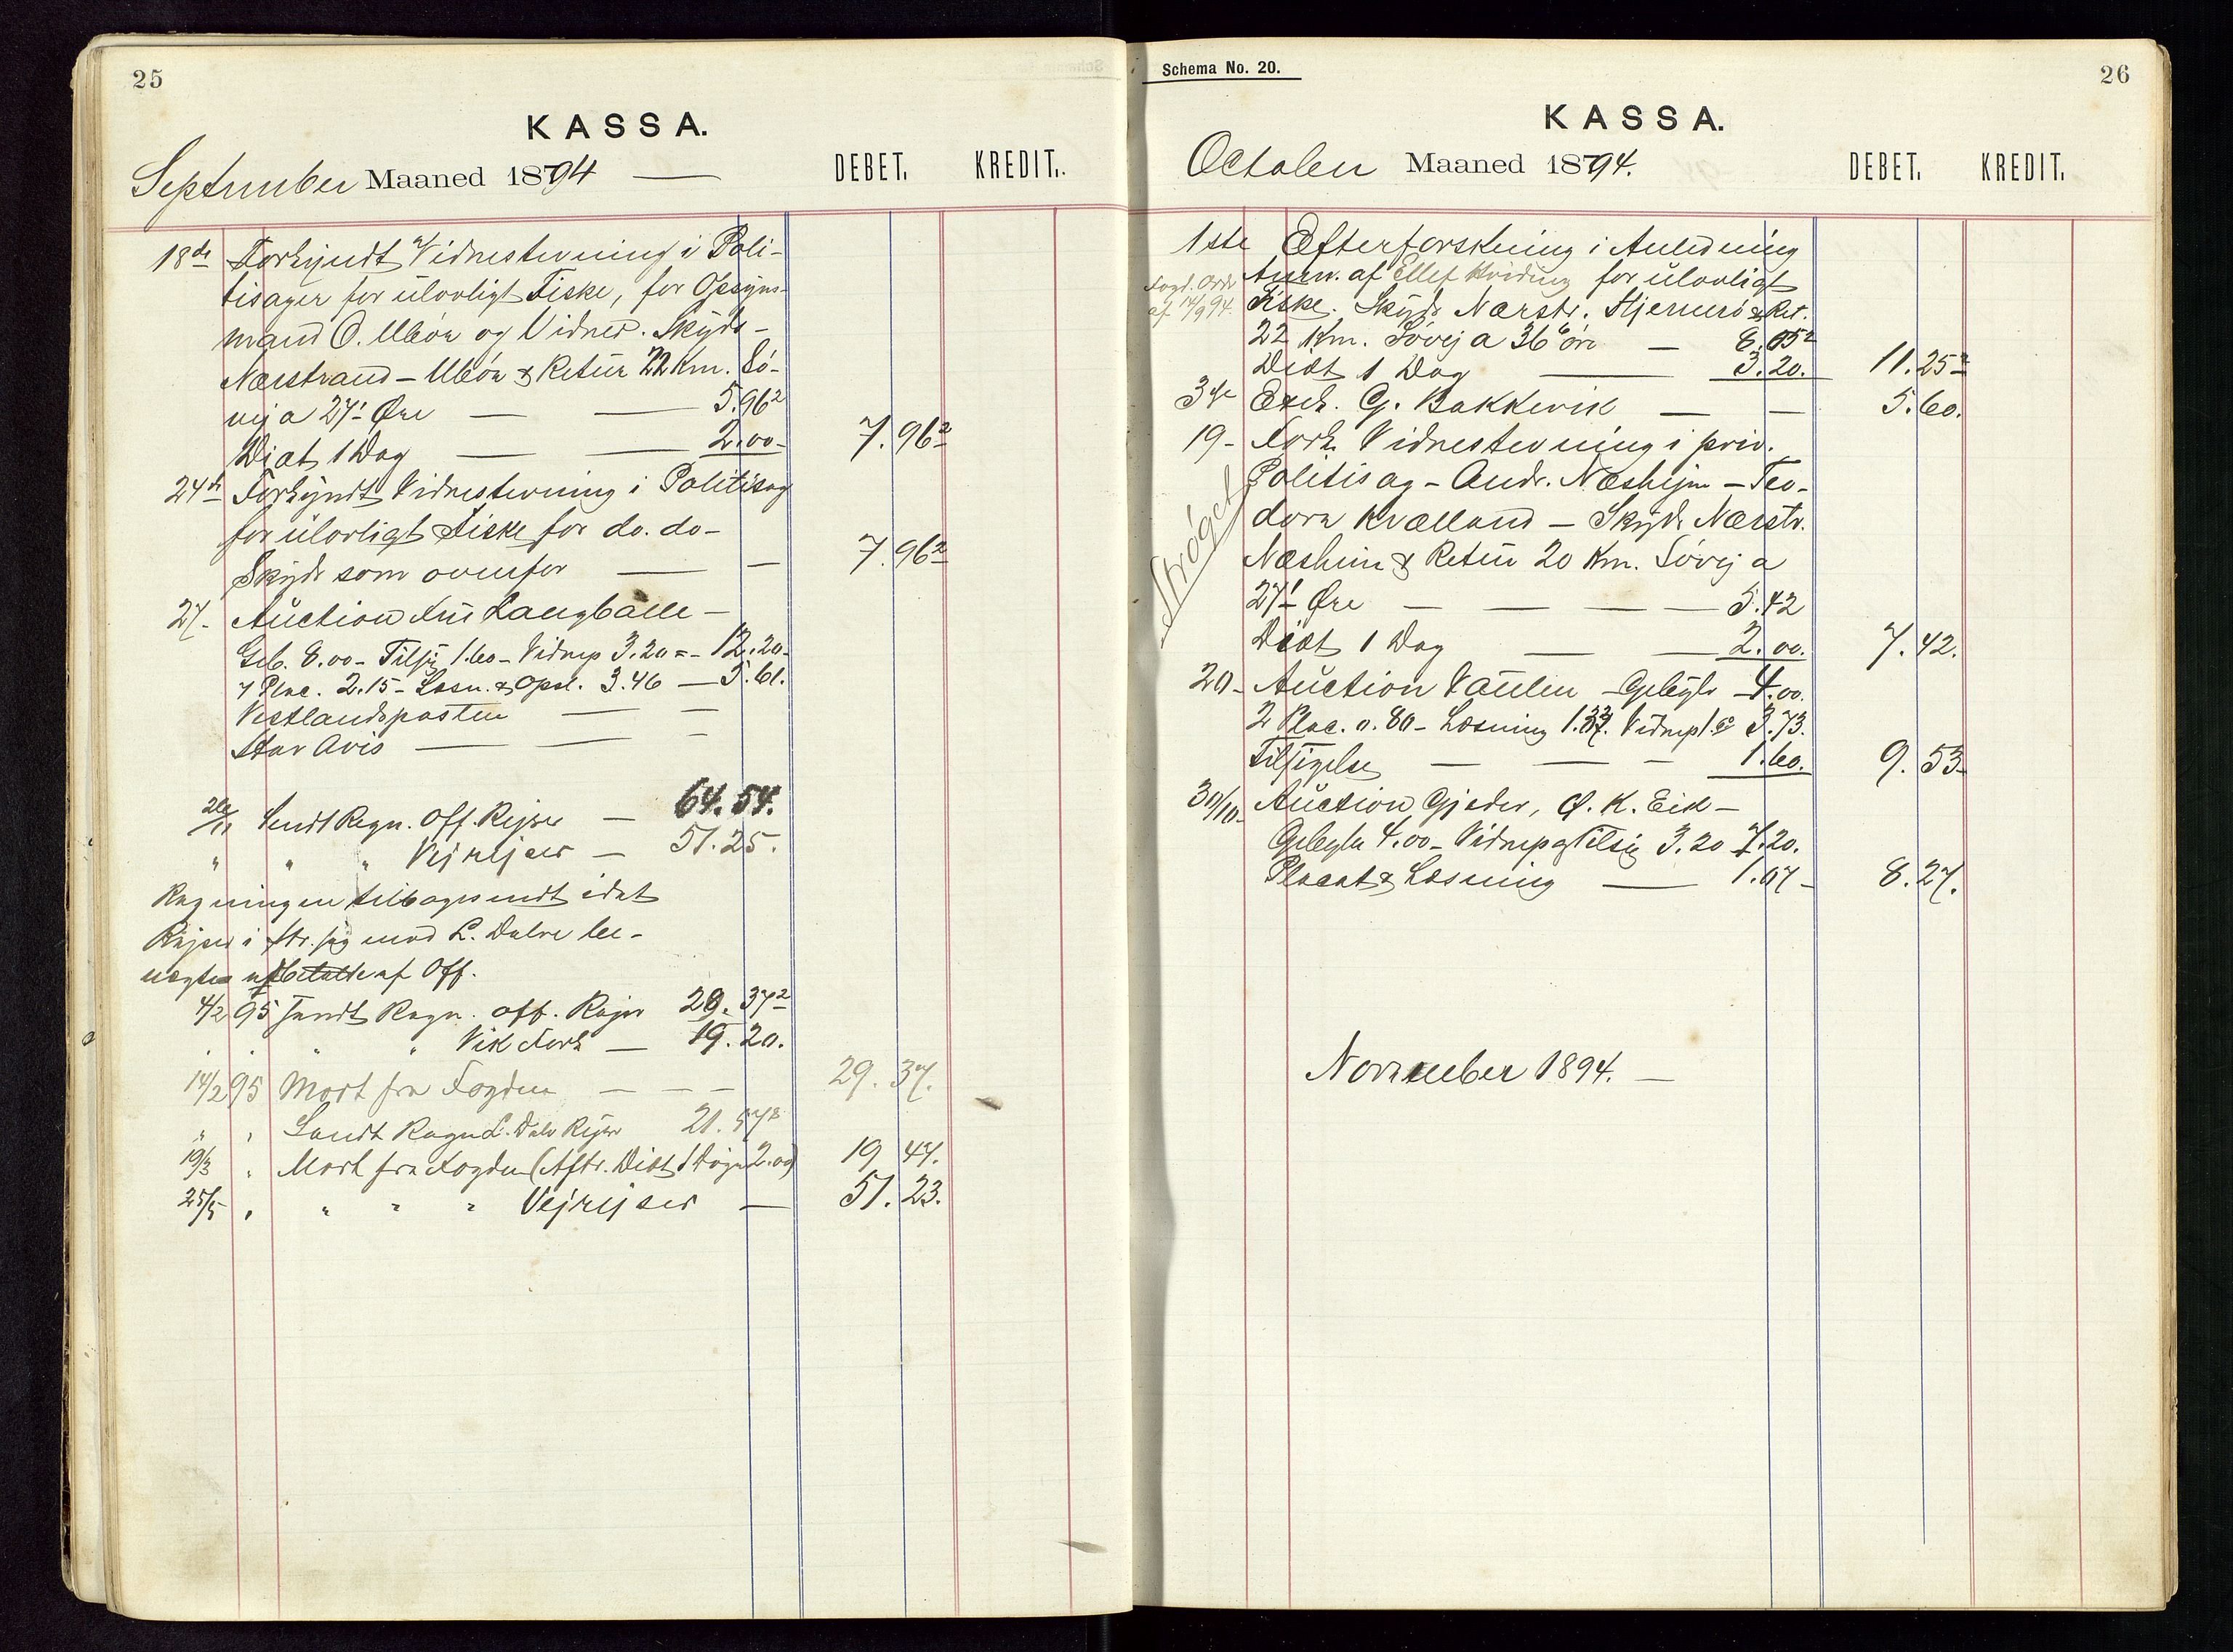 25
KASSA.
September Maaned 1894 —
DEBET. KREDIT.
18de Forkyndt Vidnestevning i Poli-
tisager for ulovligt Fiske, for Opsyns-
mand O. Uböe og Vidner. Skyds-
Nærstrand - Uböe & Retur 22 Km. Sö-
vej a 27¹ Øre — — 5.96²
Diæt 1 Dag — — 2.00- 7.96²
24de Forkyndt Vidnestevning i Politisag
for ulovligt Fiske for do. do-
Skyds som ovenfor — — 7.96²
27. Auction Langballe -
Geb. 8.00 - Tilsig 1.60 - Vidnep 3.20 = - 12.20-
7 Plac. 2.15 - Læsn. & Opsl. 3.46 — 5.61.
Vestlandsposten — —
Stav Avis — — -
26/11 Sendt Regn. Off. Rejser — 64.54.
" " " Vejrejser — 51.25.
Regningen tilbagesendt idet
Rejser i str. sag mod L. Dalve be-
nægtes af Off.
4/2 95 Sendt Regn. off. Rejser 28.37²
" " " " Vik Fork — 19.20.
14/2 95 Mort fra Fogden — — — 29.37.
" " Sendt Regn L. Dalv Rejser 21.47²
19/3 " Mort fra Fogden (Aftr. Diæt 1 Døgn 2.00) 19 47.
25/5 " " " " Vejrejser — 51.23.
Schema No. 20.
26
KASSA.
October Maaned 1894.
DEBET. KREDIT.
1ste Efterforskning i Anledning
Fogd. Ordr Anm. af Ellef Hviding for ulovligt
af 14/9 94. Fiske. Skyds Nærstr. Hjelmö & Ret.
22 Km. Sövej a 36⁶ öre — 8.05²
Diæt 1 Dag — 3.20. 11.25²
3die Exek. G. Bakkevik — — 5.60.
19- Fork. Vidnestevning i priv.
Politisag - Andr. Næshejm - Teo-
dora Kvælland - Skyds Nærstr.
Næsheim & Retur 20 Km. Sövej a
27¹ Øre — — — — 5.42
Diæt 1 Dag — — 2.00. 7.42.
Ströget
20- Auction Vaulen - Gebyhr - 4.00.
2 Plac. 0.80 - Læsning 1.33. Vidnep 1.60 3.73.
Tilsigelse — — — 1.60. 9.53-
30/10- Auction Gjeder, O. K. Eik -
Gebyhr 4.00 - Vidnep og Tilsig 3.20 7.20.
Placat & Læsning — 1.07 - 8.27.
November 1894. —